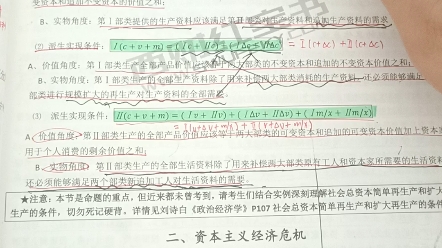 变资本和追加不变资本的价值之和;
B、实物角度: 第Ⅰ部类提供的生产资料应该满足第Ⅱ部类对生产资料和追加生产资料的需求。
(2) 派生实现条件: Ⅰ(c+v+m)=(Ⅰc+Ⅱc)+(Ⅰ△c+Ⅱ△c) = Ⅰ(c+△c)+Ⅱ(c+△c)
A、价值角度: 第Ⅰ部类生产的全部产品价值应该等于两大部类的不变资本和追加的不变资本价值之和;
B、实物角度: 第Ⅰ部类生产的全部生产资料除了用来补偿两大部类消耗的生产资料, 还必须能够满足
部类进行规模扩大的再生产对生产资料的全部需要。
(3) 派生实现条件: Ⅱ(c+v+m)=(Ⅰv+Ⅱv)+(Ⅰ△v+Ⅱ△v)+(Ⅰm/x+Ⅱm/x)
= Ⅰ(v+△v+m/x)+Ⅱ(v+△v+m/x)
A、价值角度: 第Ⅱ部类生产的全部产品价值应该等于两大部类的可变资本和追加的可变资本价值加上资本
用于个人消费的剩余价值之和;
B、实物角度: 第Ⅱ部类生产的全部生活资料除了用来补偿两大部类原有工人和资本家所需要的生活资料
还必须能够满足两个部类新追加工人对生活资料的需要。
★注意: 本节是命题的重点, 但近来都未曾考到, 请考生们结合实例深刻理解社会总资本简单再生产和扩大
生产的条件, 切勿死记硬背, 详情见刘诗白《政治经济学》P107 社会总资本简单再生产和扩大再生产的条件
二、资本主义经济危机